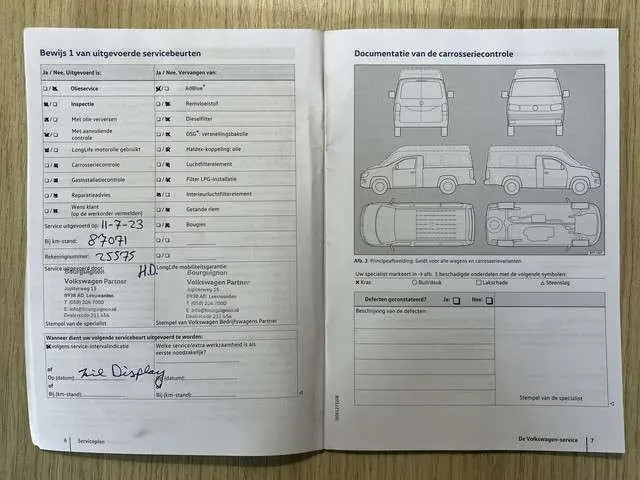 Bewijs 1 van uitgevoerde servicebeurten
Ja / Nee. Uitgevoerd is:
Ja / Nee. Vervangen van:
Olieservice
AdBlue®
Inspectie
Remvloeistof
Met olie verversen
Dieselfilter
Met aanvullende
controle
DSG®: versnellingsbakolie
LongLife motorolie gebruikt
Haldex-koppeling: olie
Carrosseriecontrole
Luchtfilterelement
Gasinstallatiecontrole
Filter LPG-installatie
Reparatieadvies
Interieurluchtfilterelement
Wens klant
(op de werkorder vermelden)
Getande riem
Service uitgevoerd op: 11-7-23
Bougies
Bij km-stand: 87071
Rekeningnummer: 25575
Service uitgevoerd door: H.D.
LongLife mobiliteitsgarantie:
Bourguignon
Volkswagen Partner
Jupiterweg 15
8938 AD Leeuwarden
T (058) 204 7000
E info@bourguignon.nl
Dealercode 211 454
Stempel van de specialist
Bourguignon
Volkswagen Partner
Jupiterweg 15
8938 AD Leeuwarden
T (058) 204 7000
E info@bourguignon.nl
Dealercode 211 454
Stempel van Volkswagen Bedrijfswagens Partner
Wanneer dient uw volgende servicebeurt uitgevoerd te worden:
volgens service-intervalindicatie
Welke service/extra werkzaamheid is als
eerste noodzakelijk?
of
Op (datum): zie Display
(datum):
of
Bij (km-stand):
Bij (km-stand):
6 Serviceplan
Documentatie van de carrosseriecontrole
Afb. 3 Principeafbeelding: Geldt voor alle wagens en carrosserievarianten
Uw specialist markeert in → afb. 3 beschadigde onderdelen met de volgende symbolen:
× Kras
○ Buil/deuk
□ Lakschade
△ Steenslag
Defecten geconstateerd?
Ja:
Nee:
Beschrijving van de defecten:
Stempel van de specialist
De Volkswagen-service 7